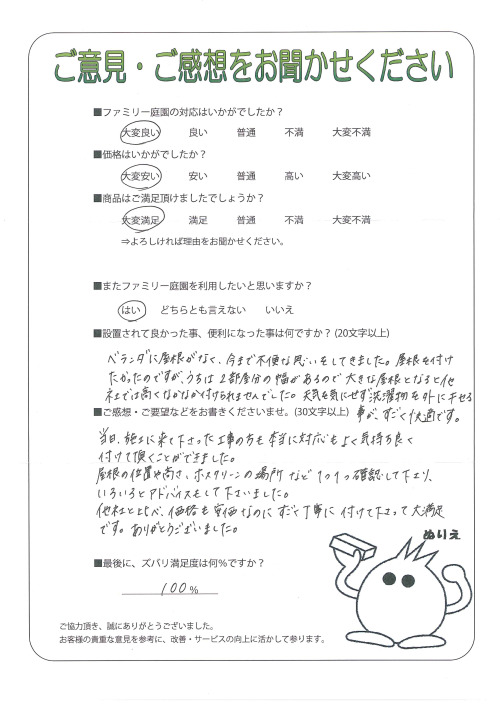 ご意見・ご感想をお聞かせください
■ファミリー庭園の対応はいかがでしたか？
大変良い 良い 普通 不満 大変不満
■価格はいかがでしたか？
大変安い 安い 普通 高い 大変高い
■商品はご満足頂けましたでしょうか？
大変満足 満足 普通 不満 大変不満
⇒よろしければ理由をお聞かせください。
■またファミリー庭園を利用したいと思いますか？
はい どちらとも言えない いいえ
■設置されて良かった事、便利になった事は何ですか？（20文字以上）
ベランダに屋根がなく、今まで不便な思いをしてきました。屋根を付け
たかったのですが、うちは2部屋分の幅があるので大きな屋根となると他
社では高くなかなか付けられませんでした。天気を気にせず洗濯物を外に干せる
事が、すごく快適です。
■ご感想・ご要望などをお書きくださいませ。（30文字以上）
当日、施工に来て下さった工事の方も本当に対応もよく気持ち良く
付けて頂くことができました。
屋根の位置や高さ、ホスクリーンの場所など1つ1つ確認して下さり、
いろいろとアドバイスもして下さいました。
他社と比べ、価格も安価なのにすごく丁寧に付けて下さって大満足
です。ありがとうございました。
ぬりえ
■最後に、ズバリ満足度は何%ですか？
100%
ご協力頂き、誠にありがとうございました。
お客様の貴重な意見を参考に、改善・サービスの向上に活かして参ります。